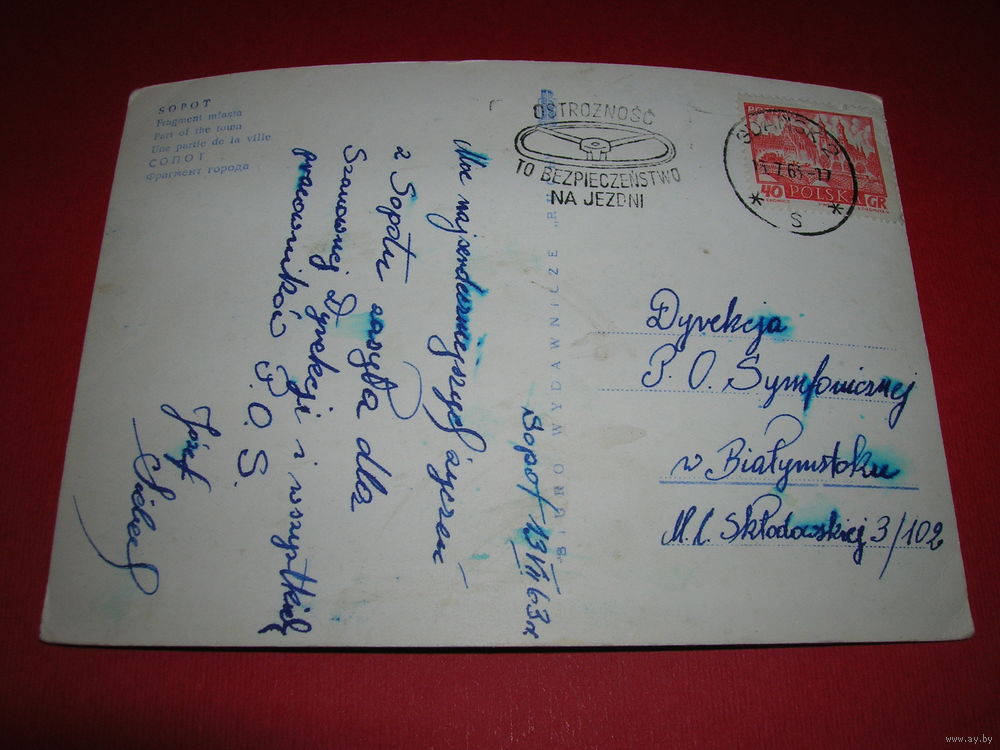 SOPOT
Fragment miasta
Part of the town
Une partie de la ville
СОПОТ
Фрагмент города
OSTROŻNOŚĆ
TO BEZPIECZEŃSTWO
NA JEZDNI
40 POLSKA GR
S
BIURO WYDAWNICZE „R
Sopot 13 VII 63 r
Moc najserdeczniejszych życzeń
z Sopotu wysyła dla
Szanownej Dyrekcji i wszystkich
pracowników P. O. S.
Józef
Dyrekcja
P. O. Symfonicznej
w Białymstoku
M. C. Skłodowskiej 3/102
www.ay.by